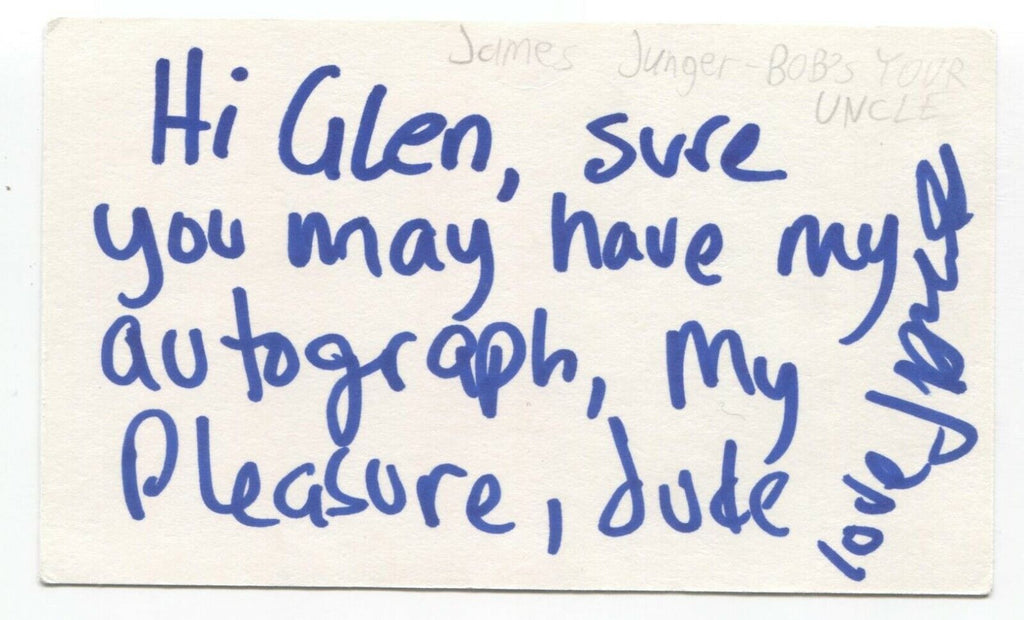 James Junger - BOB's YOUR
UNCLE
Hi Glen, sure
you may have my
autograph, My
Pleasure, dude
love James